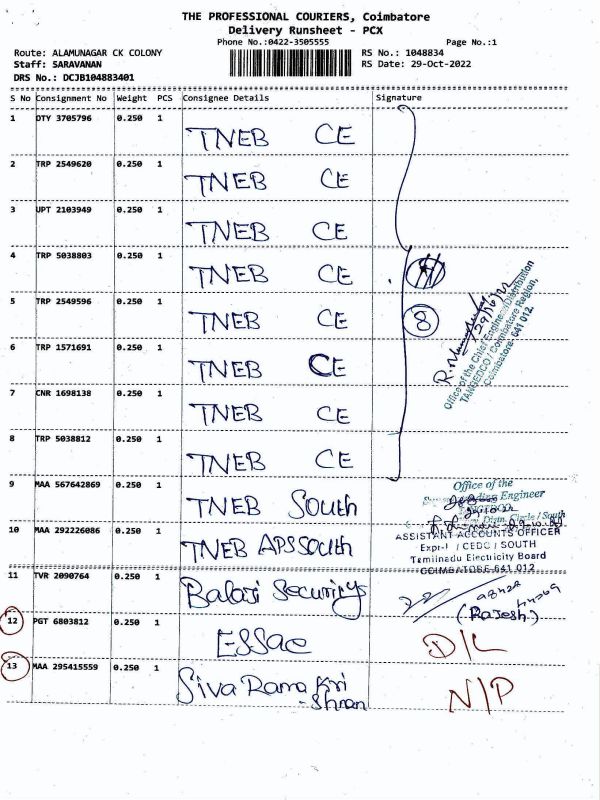 THE PROFESSIONAL COURIERS, Coimbatore
Delivery Runsheet - PCX
Phone No.:0422-3505555 Page No.:1
Route: ALAMUNAGAR CK COLONY RS No.: 1048834
Staff: SARAVANAN RS Date: 29-Oct-2022
DRS No.: DCJB104883401
S No Consignment No Weight PCS Consignee Details Signature
1 DTY 3705796 0.250 1 TNEB CE
2 TRP 2549620 0.250 1 TNEB CE
3 UPT 2103949 0.250 1 TNEB CE
4 TRP 5038803 0.250 1 TNEB CE
5 TRP 2549596 0.250 1 TNEB CE 8
6 TRP 1571691 0.250 1 TNEB CE
7 CNR 1698138 0.250 1 TNEB CE
8 TRP 5038812 0.250 1 TNEB CE
Office of the Chief Engineer/Distribution
TANGEDCO / Coimbatore Region,
Coimbatore- 641 012
9 MAA 567642869 0.250 1 TNEB South
Office of the
Engineer
Distn. Circle / South
10 MAA 292226086 0.250 1 TNEB APSSouth
ASSISTANT ACCOUNTS OFFICER
Expr-I / CEDC / SOUTH
Tamilnadu Electricity Board
COIMBATORE-641 012
11 TVR 2090764 0.250 1 Balaji Securitys
(Rajesh)
12 PGT 6803812 0.250 1 ESSae D/L
13 MAA 295415559 0.250 1 Siva Rama Kri
-Shnan N/P